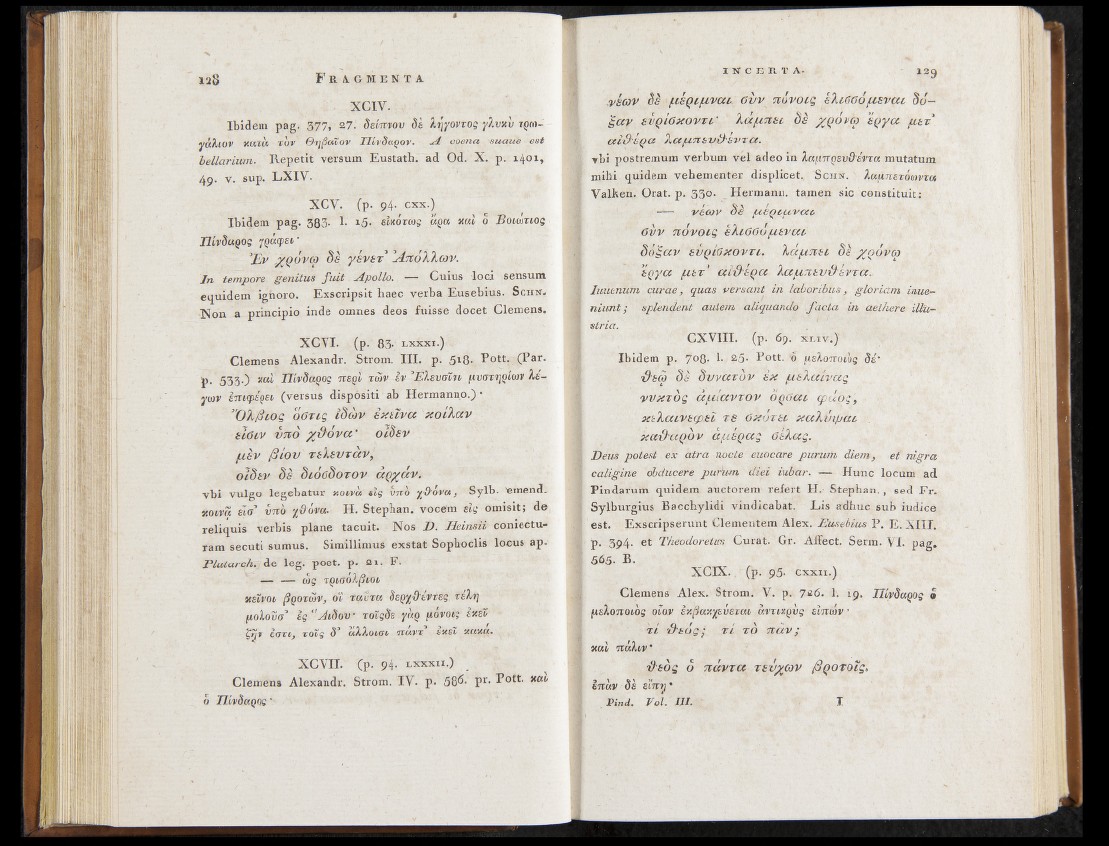 128 FRAGMENTA
XCIV.
Ibidem pag. 377, 27. δείπνου δὲ λήγοντος γλυκὺ τρω-
γάλιον κατὰ τὸν Θηβαῖον Πίνδαρον. A coena suaue est
bellarium. Repetit versum Eustath. ad Od. X. p. 1401,
49. v. sup. LXIV.
XCV. (p. 94. CXX.)
Ibidem pag. 383. l. 15. εἰκότως ἄρα καὶ ὁ Βοιώτιος
Πίνδαρος γράφει·
Ἐν χρόνῳ δὲ γένετ' Ἀπόλλων.
In tempore genitus fuit Apollo. — Cuius loci sensum
equidem ignoro. Exscripsit haec verba Eusebius. SCHN.
Non a principio inde omnes deos fuisse docet Clemens.
XCVI. (p. 83. LXXXI.)
Clemens Alexandr. Strom. III. p. 518. Pott. (Par.
p. 533.) καὶ Πίνδαρος περὶ τῶν ἐν Ἐλευσῖνι μυστηρίων λέ-
γων ἐπιφέρει (versus dispositi ab Hermanno.)·
Ὄλβιος ὅστις ἰδὼν ἐκεῖνα κοίλαν
εἶσιν ὑπὸ χθόνα· οἶδεν
μὲν βίου τελευτὰν,
οἶδεν δὲ διόσδοτον ἀρχάν.
vbi vulgo legebatur κοινὰ εἰς ὑπὸ χθόνα, Sylb. emend.
κοινᾷ εἶσ' ὑπὸ χθόνα. H. Stephan. vocem εἰς omisit; de
reliquis verbis plane tacuit. Nos D. Heinsii coniectu-
ram secuti sumus. Simillimus exstat Sophoclis locus ap.
Plutarch. de leg. poet. p. 21. F.
— — ὡς τρισόλβιοι
κεῖνοι βροτῶν, οἳ ταῦτα δερχθέντες τέλη
μολοῦσ' ἐς Ἅιδου· τοῖςδε γὰρ μόνοις ἐκεῖ
ζῆν ἐστι, τοῖς δ' ἄλλοισι πάντ' ἐκεῖ κακά.
XCVII. (p. 94. LXXXII.)
Clemens Alexandr. Strom. IV. p. 586. pr. Pott. καὶ
ὁ Πίνδαρος·
INCERTA. 129
νέων δὲ μέριμναι σὺν πόνοις ἑλισσόμεναι δό-
ξαν εὑρίσκοντι· λάμπει δὲ χρόνῳ ἔργα μετ'
αἰθέρα λαμπευθέντα.
vbi postremum verbum vel adeo in λαμπρευθέντα mutatum
mihi quidem vehementer displicet. SCHN. λαμπετόωντα
Valken. Orat. p. 330. Hermann. tamen sic constituit:
— νέων δὲ μέριμναι
σὺν πόνοις ἑλισσόμεναι
δόξαν εὑρίσκοντι. λάμπει δὲ χρόνῳ
ἔργα μετ' αἰθέρα λαμπευθέντα.
Iuuenum curae, quas versant in laboribus, gloriam inue-
niunt; splendent autem aliquando facta in aethere illu-
stria.
CXVIII. (p. 69. XLIV.)
Ibidem p. 708. l. 25. Pott. ὁ μελοποιὸς δέ·
θεῷ δὲ δυνατὸν ἐκ μελαίνας
νυκτὸς ἀμίαντον ὄρσαι φάος,
κελαινεφεῖ τε σκότει καλύψαι
καθαρὸν ἁμέρας σέλας.
Deus potest ex atra nocte euocare purum diem, et nigra
caligine obducere purum diei iubar. — Hunc locum ad
Pindarum quidem auctorem refert H. Stephan., sed Fr.
Sylburgius Bacchylidi vindicabat. Lis adhuc sub iudice
est. Exscripserunt Clementem Alex. Eusebius P. E. XIII.
p. 394. et Theodoretus Curat. Gr. Affect. Serm. VI. pag.
565. B.
XCIX. (p. 95. CXXII.)
Clemens Alex. Strom. V. p. 726. l. 19. Πίνδαρος ὁ
μελοποιὸς οἷον ἐκβακχεύεται ἀντικρὺς εἰπών·
τί θεός; τί τὸ πάν;
καὶ πάλιν·
θεὸς ὁ πάντα τεύχων βροτοῖς.
ἐπὰν δὲ εἴπῃ·
Pind. Vol. III. I